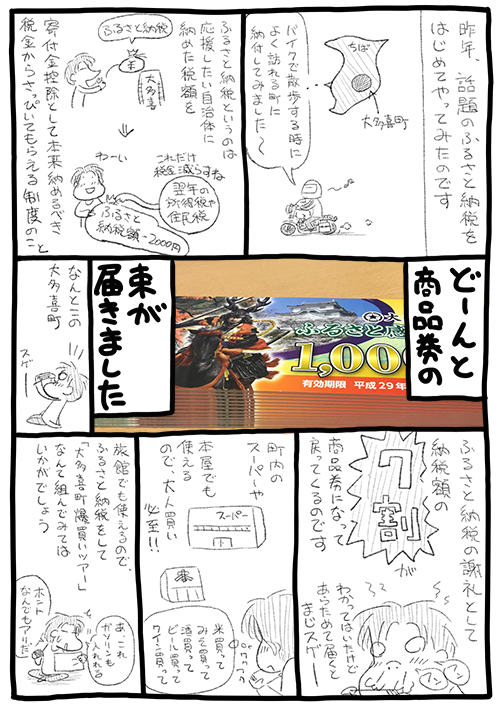 昨年、話題のふるさと納税を
はじめてやってみたのです
ちば
大多喜町
バイクで散歩する時に
よく訪れる町に
納付してみました〜
ふるさと納税というのは
応援したい自治体に
納めた税額を
ふるさと納税
大多喜
わーい
これだけ
税金減らすね
翌年の
所得税や
住民税
ふるさと
納税額-2000円
寄付金控除として本来納めるべき
税金からさっぴいてもらえる制度のこと
どーんと
商品券の
束が
届きました
大
ふるさと感
1,000
有効期限 平成29年
なんとこの
大多喜町
スゲー
ふるさと納税の謝礼として
納税額の
7割
が
商品券になって
戻ってくるのです
わかってはいたけど
あらためて届くと
まじスゲー
町内の
スーパーや
本屋でも
使える
ので、大人買い
必至!!
スーパー
本
米買って
みそ買って
酒買って
ビール買って
ワイン買って
旅館でも使えるので、
ふるさと納税をして
「大多喜町爆買いツアー」
なんて組んでみては
いかがでしょう
あ、これ
ガソリンも
入れれる
ホント
なんでもアリだ